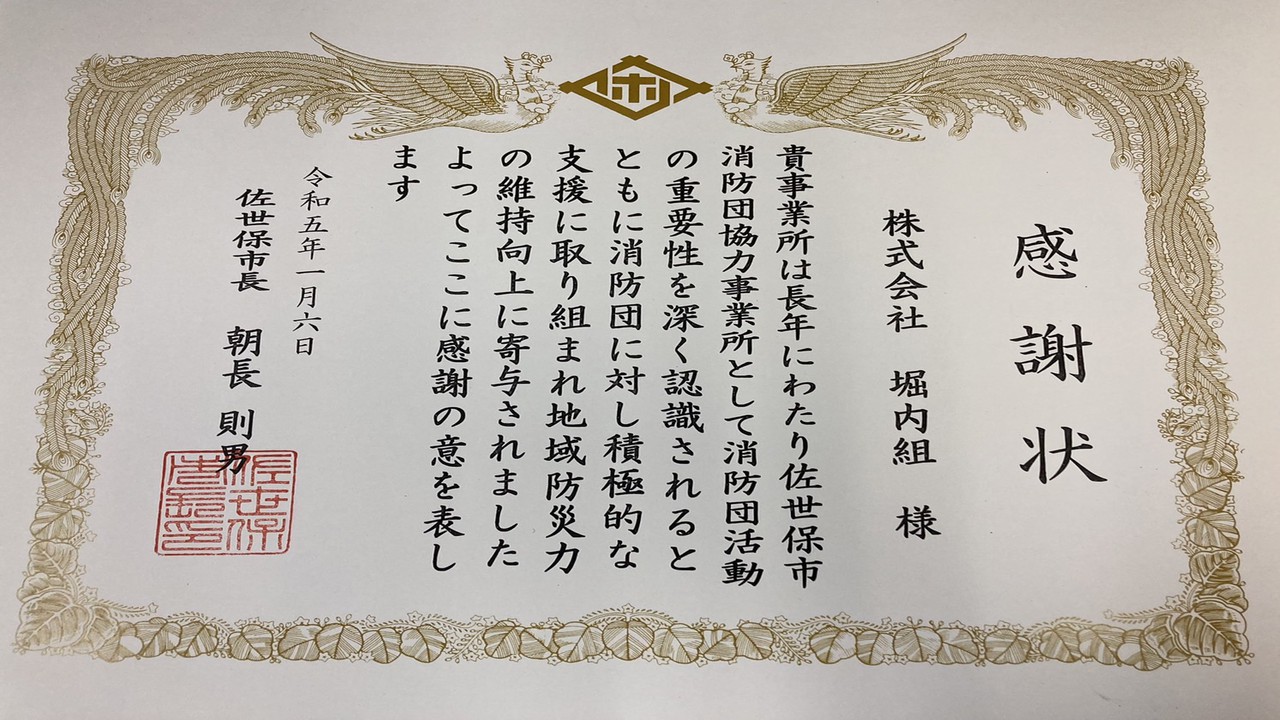 感謝状
株式会社 堀内組 様
貴事業所は長年にわたり佐世保市
消防団協力事業所として消防団活動
の重要性を深く認識されると
ともに消防団に対し積極的な
支援に取り組まれ地域防災力
の維持向上に寄与されました
よってここに感謝の意を表し
ます
令和五年一月六日
佐世保市長 朝長 則男